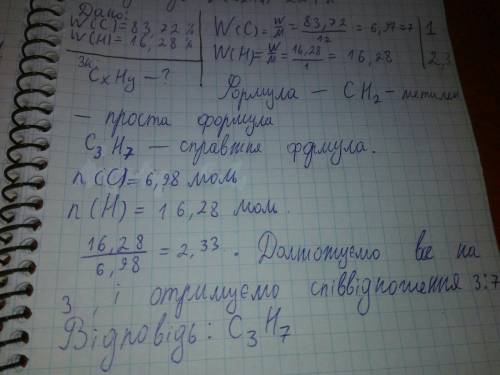 Дано:
W(C)=83,72%
W(H)=16,28%
Зн.
CxHy –?
W(C)= W/M = 83,72/12 = 6,977 | 1
W(H)= W/M = 16,28/1 = 16,28 | 2,3
Формула – CH2 – метилен
– проста формула
C3H7 – справжня формула.
n(C)=6,98 моль
n(H)=16,28 моль.
16,28/6,98 = 2,33. все на
3, і отримуємо співвідношення 3:7
Відповідь: C3H7